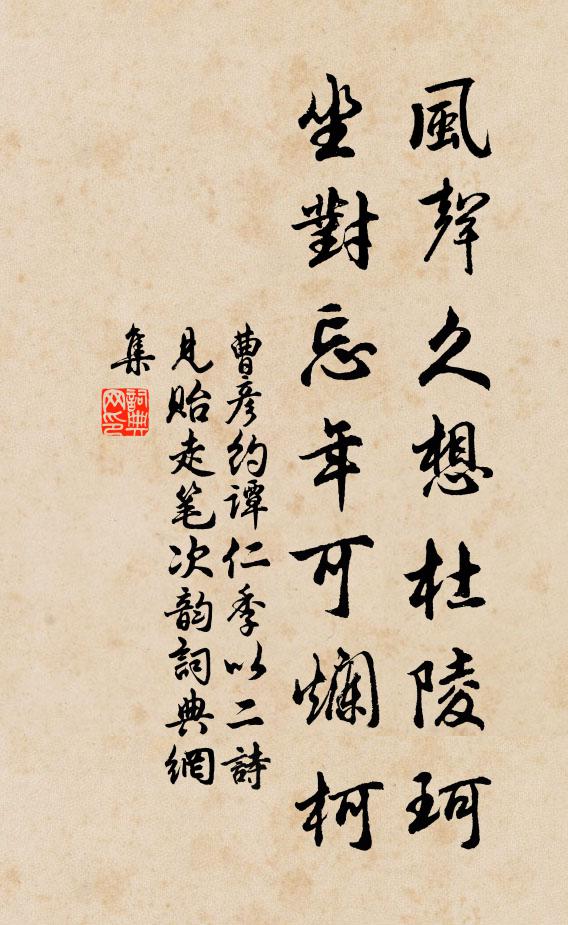 風聲久想杜陵珂
坐對忘年可爛柯
曹彦約譚仁季以二詩
見貽走笔次韵詞典網
集
詞典
网印